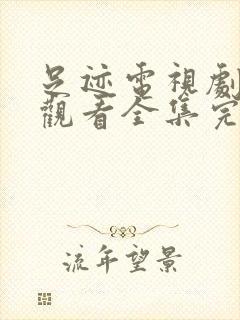 足迹電視劇
觀看全集完
流年望景